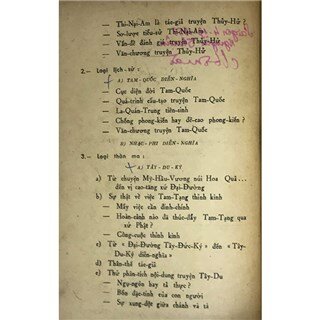 — Thi-Nại-Am là tác-giả truyện Thủy-Hử ?
— Sơ-lược tiểu-sử Thi-Nại-Am
— Vấn-đề đánh giá truyện Thủy-Hử
— Văn-chương truyện Thủy-Hử
2.— Loại lịch-sử :
A) TAM-QUỐC DIỄN-NGHĨA
— Cục diện đời Tam-Quốc
— Quá-trình cấu-tạo truyện Tam-Quốc
— La-Quán-Trung tiên-sinh
— Chống phong-kiến hay đề-cao phong-kiến ?
— Văn-chương truyện Tam-Quốc
B) NHẠC-PHI DIỄN-NGHĨA
3.— Loại thần ma :
A) TÂY-DU-KÝ
a) Từ chuyện Mỹ-Hầu-Vương núi Hoa Quả...
đến vị cao-tăng xứ Đại-Đường
b) Sự thật về việc Tam-Tạng thỉnh kinh
— Mấy việc cần đính-chính
— Hoàn-cảnh nào đã thúc-đẩy Tam-Tạng qua
xứ Phật ?
— Công-cuộc thỉnh kinh
c) Từ « Đại-Đường Tây-Đức-Ký » đến « Tây-
Du-Ký diễn-nghĩa »
d) Thân-thế tác-giả
e) Thử phân-tích nội-dung truyện Tây-Du
— Ngụ-ngôn hay tả thực ?
— Bốn đặc-tính của con người
— Sự xung-đột giữa chánh và tà